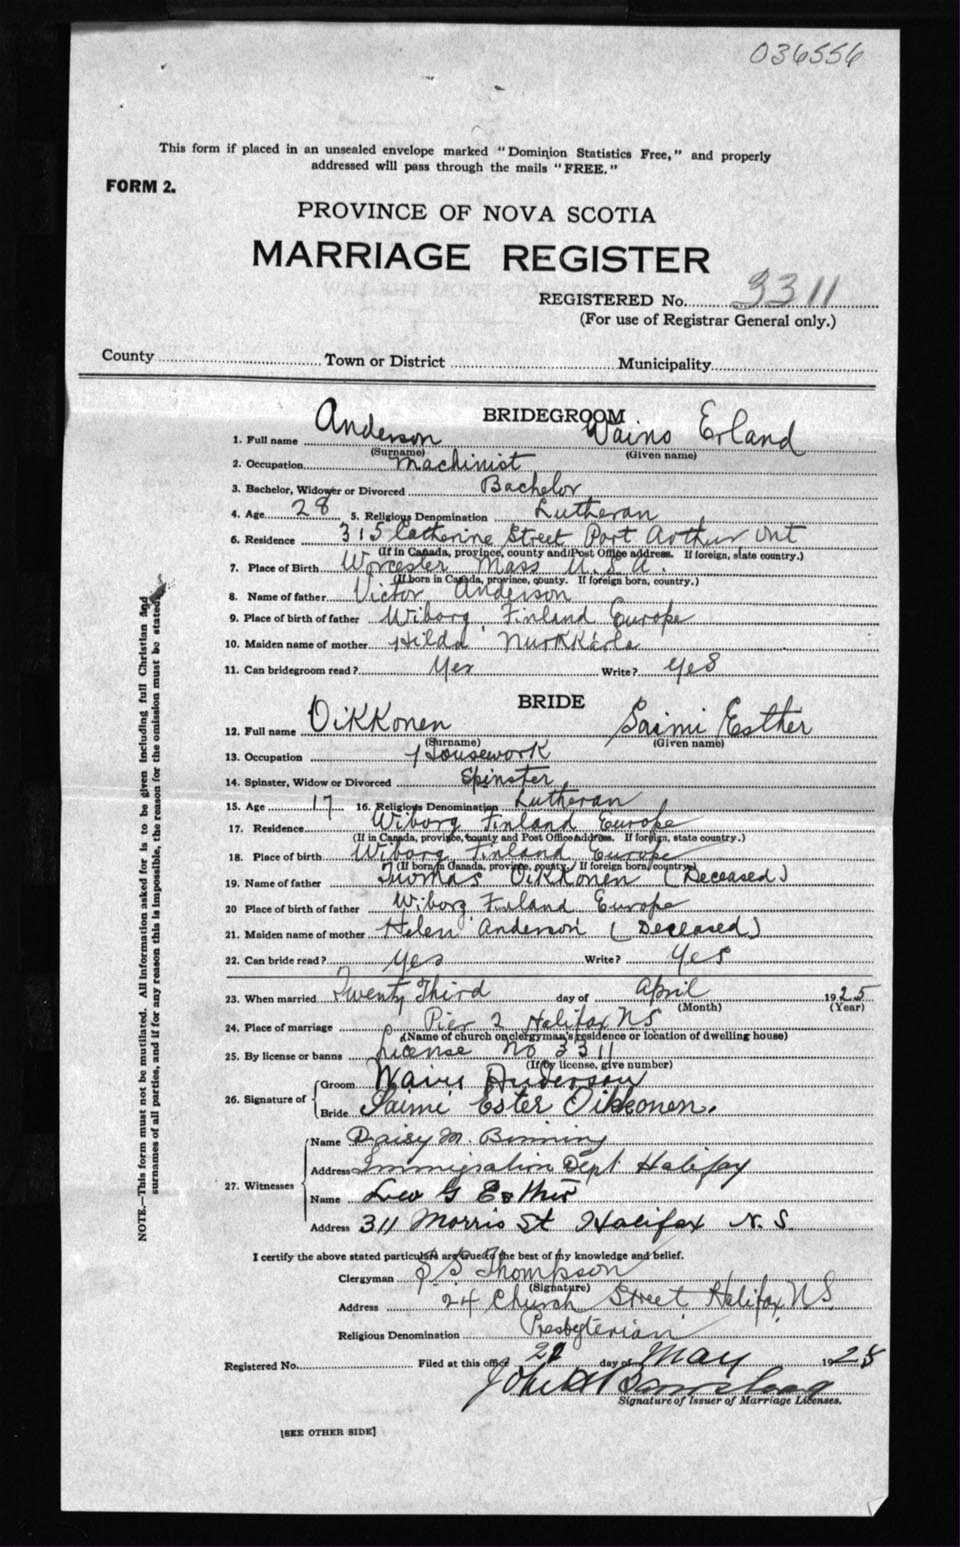 036556
This form if placed in an unsealed envelope marked "Dominion Statistics Free," and properly
addressed will pass through the mails "FREE."
FORM 2.
PROVINCE OF NOVA SCOTIA
MARRIAGE REGISTER
REGISTERED No. 3311
(For use of Registrar General only.)
County Town or District Municipality
BRIDEGROOM
1. Full name Anderson Waino Erland
(Surname) (Given name)
2. Occupation Machinist
3. Bachelor, Widower or Divorced Bachelor
4. Age 28 5. Religious Denomination Lutheran
6. Residence 315 Catherine Street Port Arthur Ont
(If in Canada, province, county and Post Office address. If foreign, state country.)
7. Place of Birth Worcester Mass U.S.A.
(If born in Canada, province, county. If foreign born, country.)
8. Name of father Victor Anderson
9. Place of birth of father Wiborg Finland Europe
10. Maiden name of mother Hilda
11. Can bridegroom read? Yes Write? Yes
BRIDE
12. Full name Oikkonen Saimi Esther
(Surname) (Given name)
13. Occupation Housework
14. Spinster, Widow or Divorced Spinster
15. Age 17 16. Religious Denomination Lutheran
17. Residence Wiborg Finland Europe
(If in Canada, province, county and Post Office Address. If foreign, state country.)
18. Place of birth Wiborg Finland Europe
(If born in Canada, province, county. If foreign born, country)
19. Name of father Thomas Oikkonen (Deceased)
20 Place of birth of father Wiborg Finland Europe
21. Maiden name of mother Helen Anderson (Deceased)
22. Can bride read? Yes Write? Yes
23. When married Twenty Third day of April 1925
(Month) (Year)
24. Place of marriage Pier 2 Halifax NS
(Name of church or clergyman's residence or location of dwelling house)
25. By license or banns License No 3311
(If by license, give number)
26. Signature of
Groom Waino Anderson
Bride Saimi Ester Oikkonen.
27. Witnesses
Name Daisy M. Binning
Address Immigration Dept Halifax
Name Leo G
Address 311 Morris St Halifax N.S.
I certify the above stated particulars are true to the best of my knowledge and belief.
Clergyman Thompson
(Signature)
Address 24 Church Street Halifax, NS
Religious Denomination Presbyterian
Registered No. Filed at this office day of May 1925
John
Signature of Issuer of Marriage Licenses.
[SEE OTHER SIDE]
NOTE.—This form must not be mutilated. All information asked for is to be given including full Christian and
surnames of all parties, and if for any reason this is impossible, the reason for the omission must be stated.